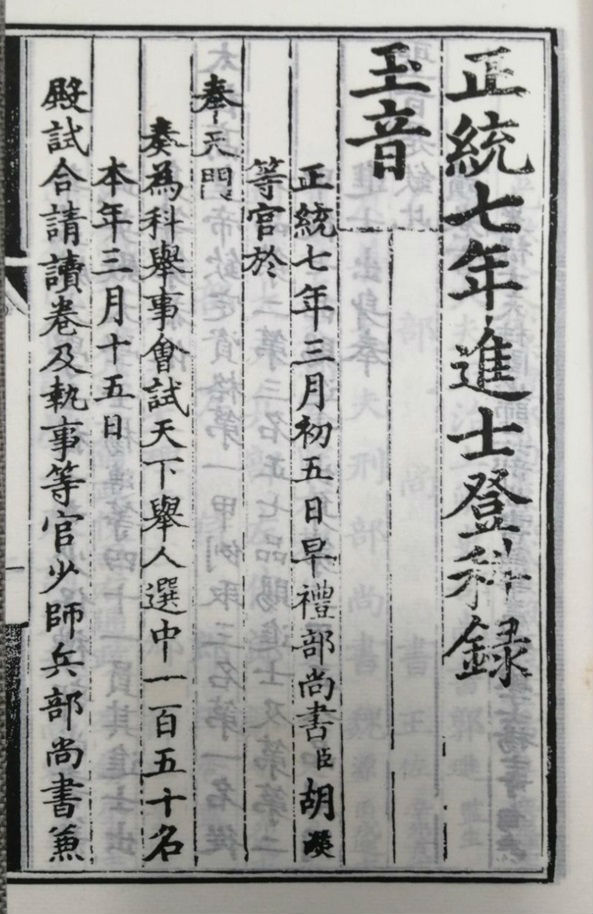 正統七年進士登科錄
玉音
正統七年三月初五日早禮部尚書臣胡濙
等官於
奉天門
奏為科舉事會試天下舉人選中一百五十名
本年三月十五日
殿試合請讀卷及執事等官少師兵部尚書兼
一